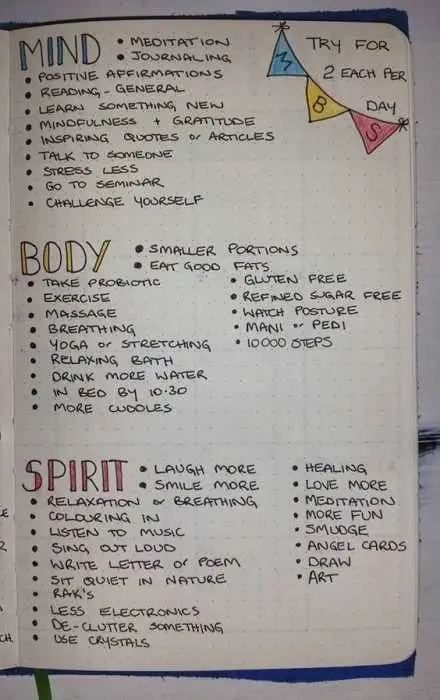 MIND
• MEDITATION
• JOURNALING
• POSITIVE AFFIRMATIONS
• READING - GENERAL
• LEARN SOMETHING NEW
• MINDFULNESS + GRATITUDE
• INSPIRING QUOTES or ARTICLES
• TALK TO SOMEONE
• STRESS LESS
• GO TO SEMINAR
• CHALLENGE YOURSELF
M
B
S
TRY FOR
2 EACH PER
DAY
BODY
• SMALLER PORTIONS
• EAT GOOD FATS
• TAKE PROBIOTIC
• EXERCISE
• MASSAGE
• BREATHING
• YOGA or STRETCHING
• RELAXING BATH
• DRINK MORE WATER
• IN BED BY 10·30
• MORE CUDDLES
• GLUTEN FREE
• REFINED SUGAR FREE
• WATCH POSTURE
• MANI or PEDI
• 10000 STEPS
SPIRIT
• LAUGH MORE
• SMILE MORE
• RELAXATION or BREATHING
• COLOURING IN
• LISTEN TO MUSIC
• SING OUT LOUD
• WRITE LETTER or POEM
• SIT QUIET IN NATURE
• RAK's
• LESS ELECTRONICS
• DE-CLUTTER SOMETHING
• USE CRYSTALS
• HEALING
• LOVE MORE
• MEDITATION
• MORE FUN
• SMUDGE
• ANGEL CARDS
• DRAW
• ART